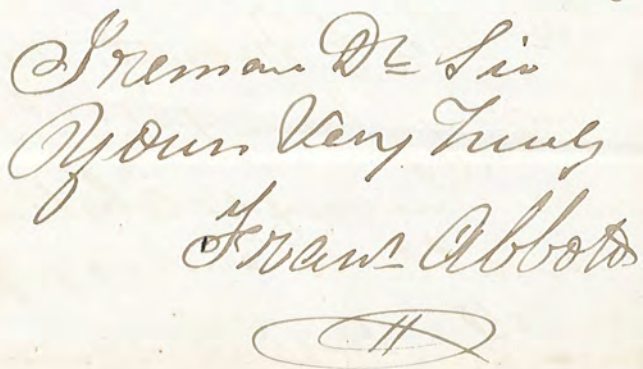 I remain Dr Sir
Yours Very Truly
Frans Abbott